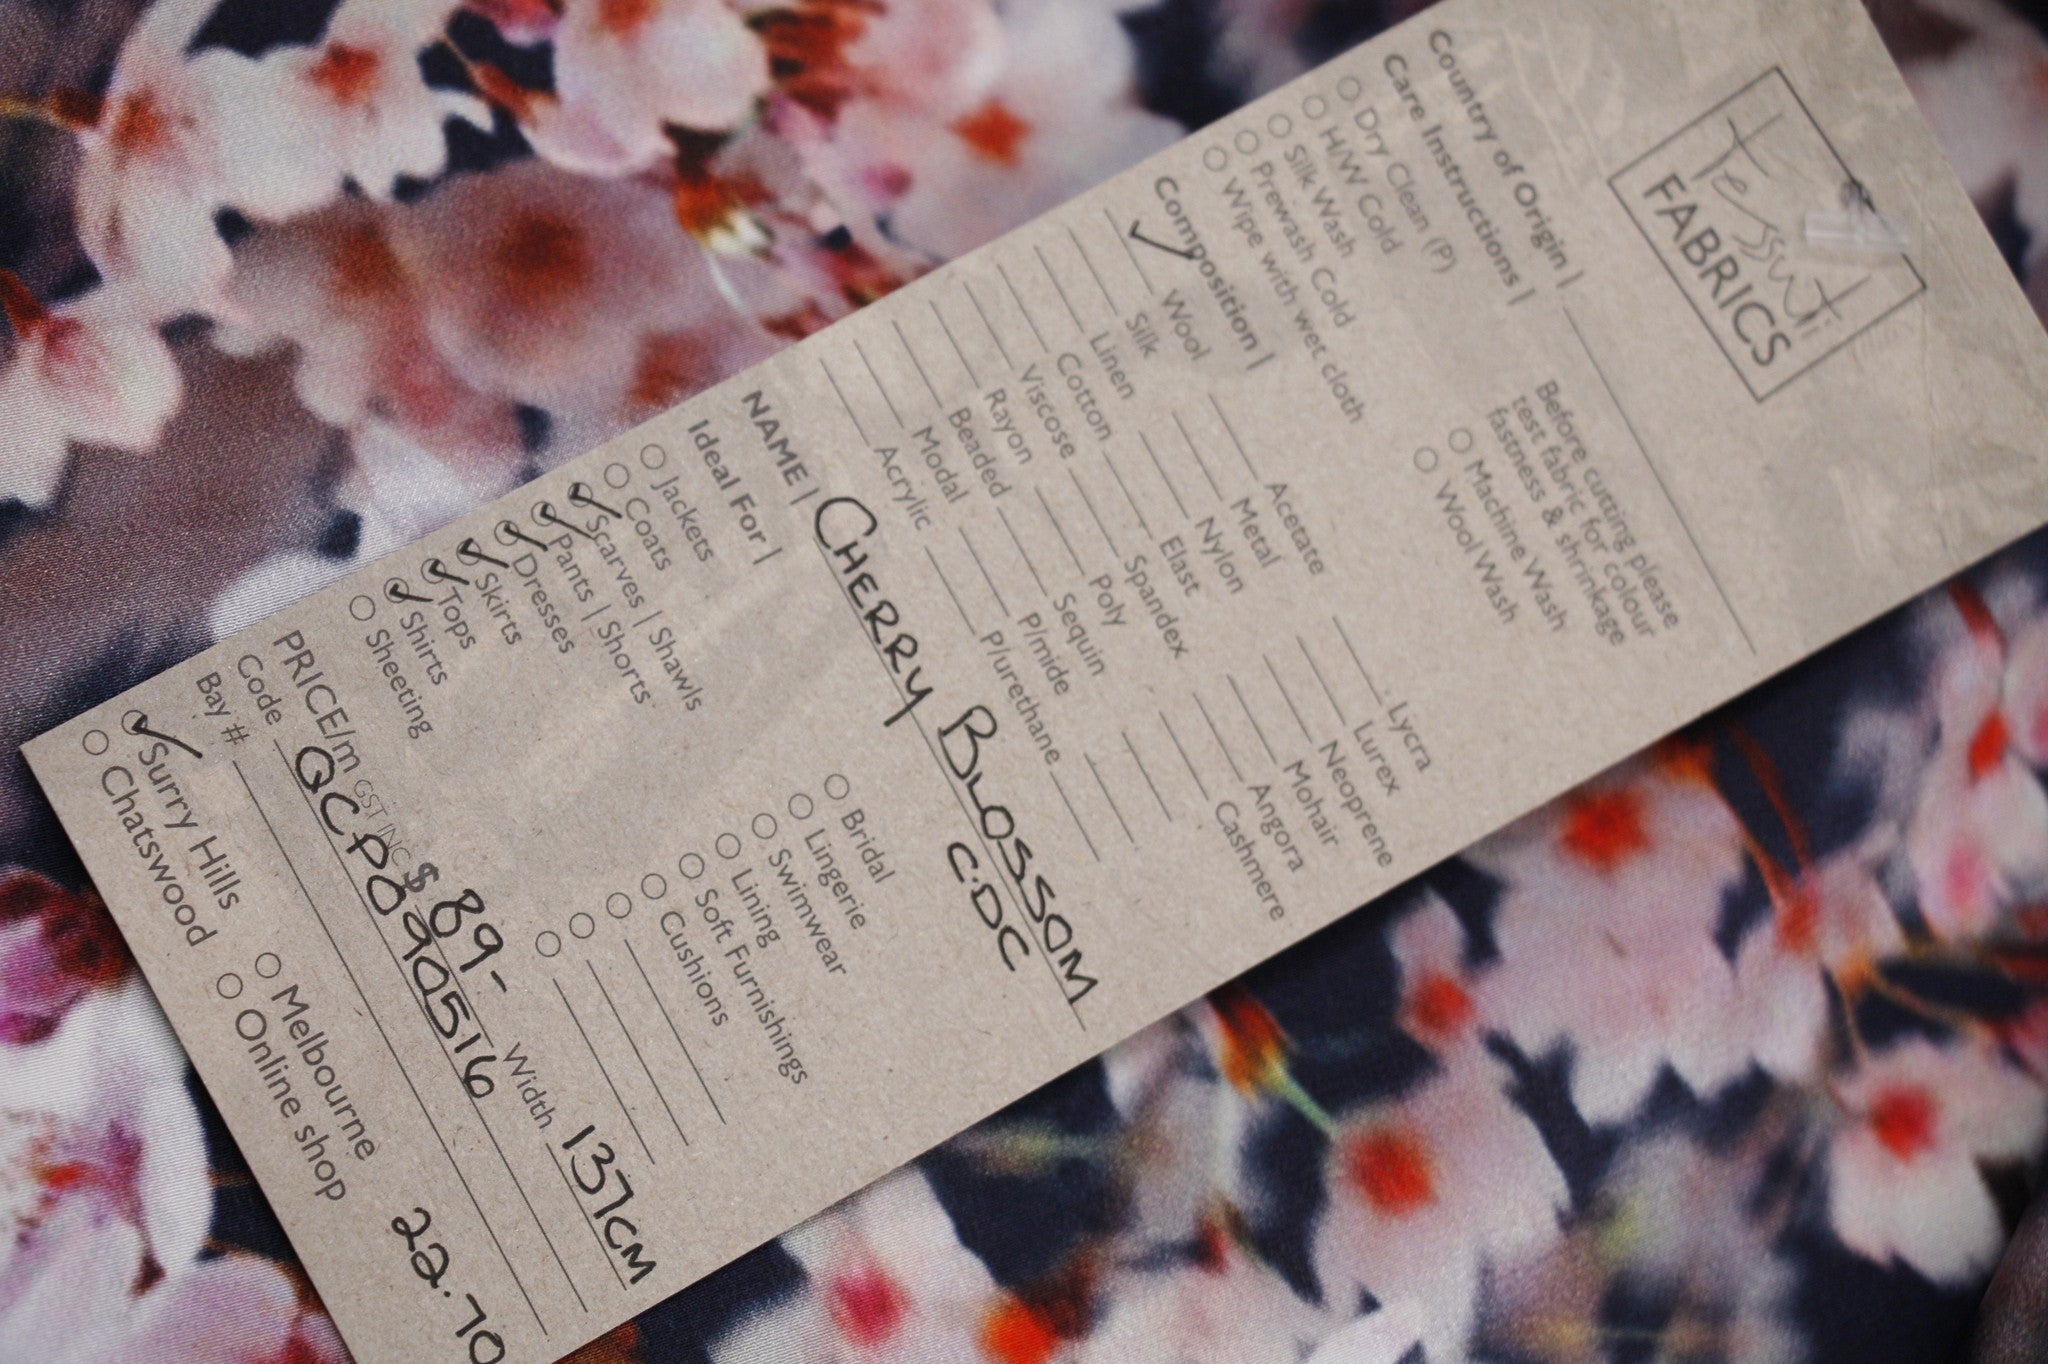 Tessuti
FABRICS
Country of Origin |
Care Instructions |
Before cutting please
test fabric for colour
fastness & shrinkage
Dry Clean (P)
H/W Cold
Silk Wash
Prewash Cold
Wipe with wet cloth
Machine Wash
Wool Wash
Composition |
Wool
Silk
Linen
Cotton
Viscose
Rayon
Beaded
Modal
Acrylic
Acetate
Metal
Nylon
Elast
Spandex
Poly
Sequin
P/mide
P/urethane
Lycra
Lurex
Neoprene
Mohair
Angora
Cashmere
NAME | CHERRY BLOSSOM
C.DC
Ideal For |
Jackets
Coats
Scarves | Shawls
Pants | Shorts
Dresses
Skirts
Tops
Shirts
Sheeting
Bridal
Lingerie
Swimwear
Lining
Soft Furnishings
Cushions
PRICE/m GST INC $89- Width 137CM
Code QCP090516
Bay #
Surry Hills
Chatswood
Melbourne
Online shop
22.70